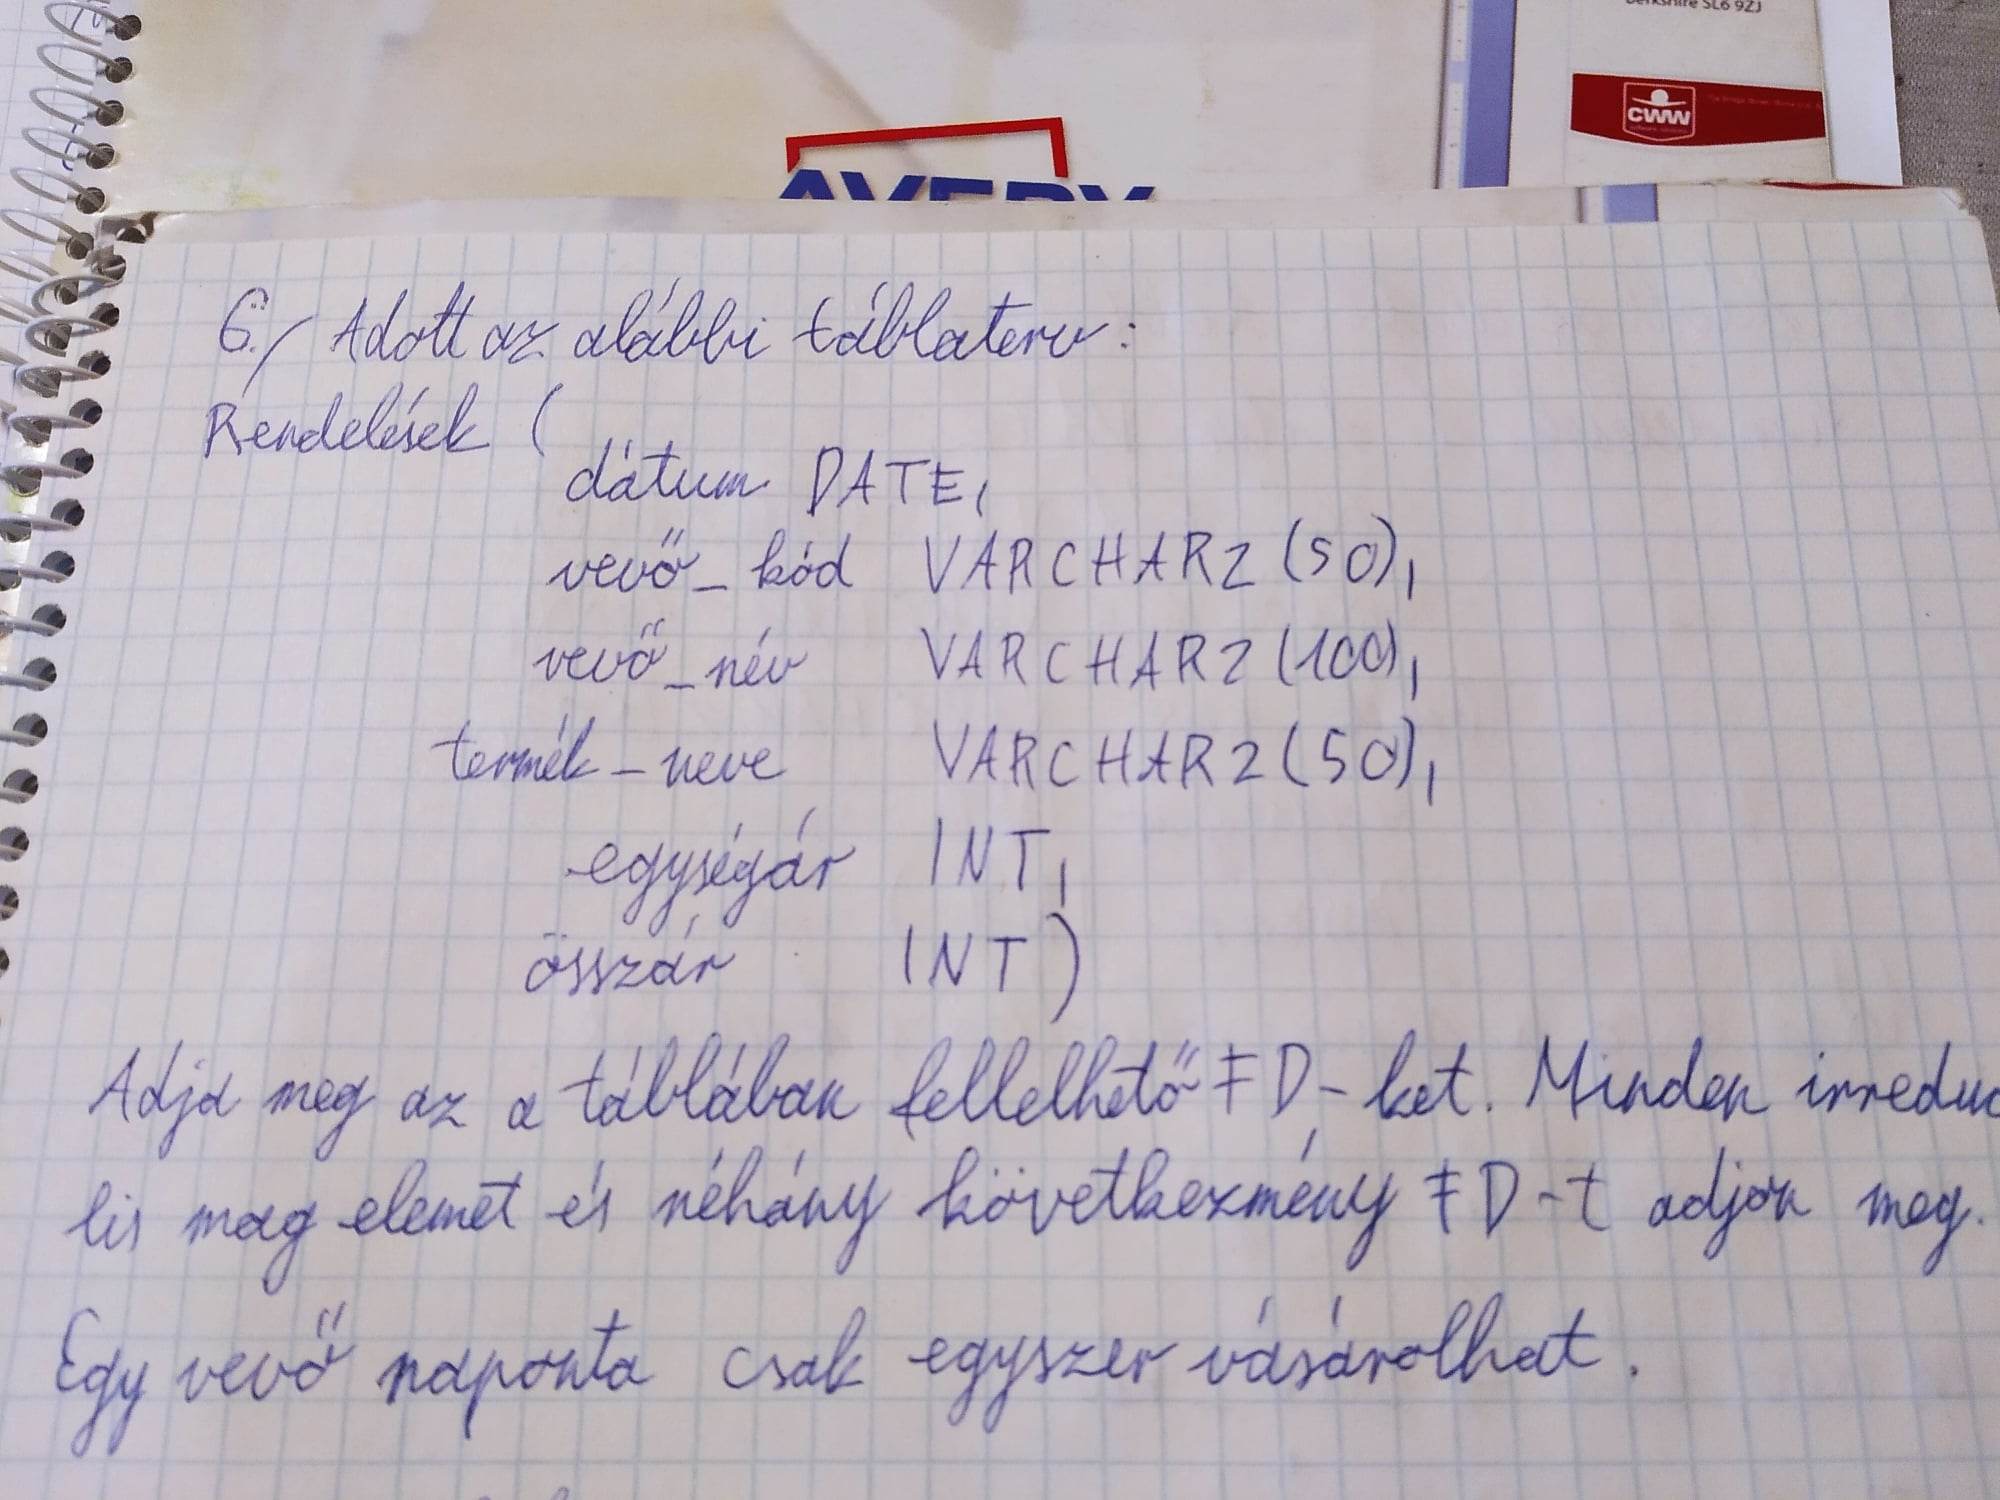 Berkshire SL6 9ZJ
CWW
AVERY
6./ Adott az alábbi táblaterv:
Rendelések (
dátum DATE,
vevő_kód VARCHAR2(50),
vevő_név VARCHAR2(100),
termék_neve VARCHAR2(50),
egységár INT,
összár INT)
Adja meg az a táblában fellelhető FD-ket. Minden irreduc
lis mag elemet és néhány következmény FD-t adjon meg.
Egy vevő naponta csak egyszer vásárolhat.